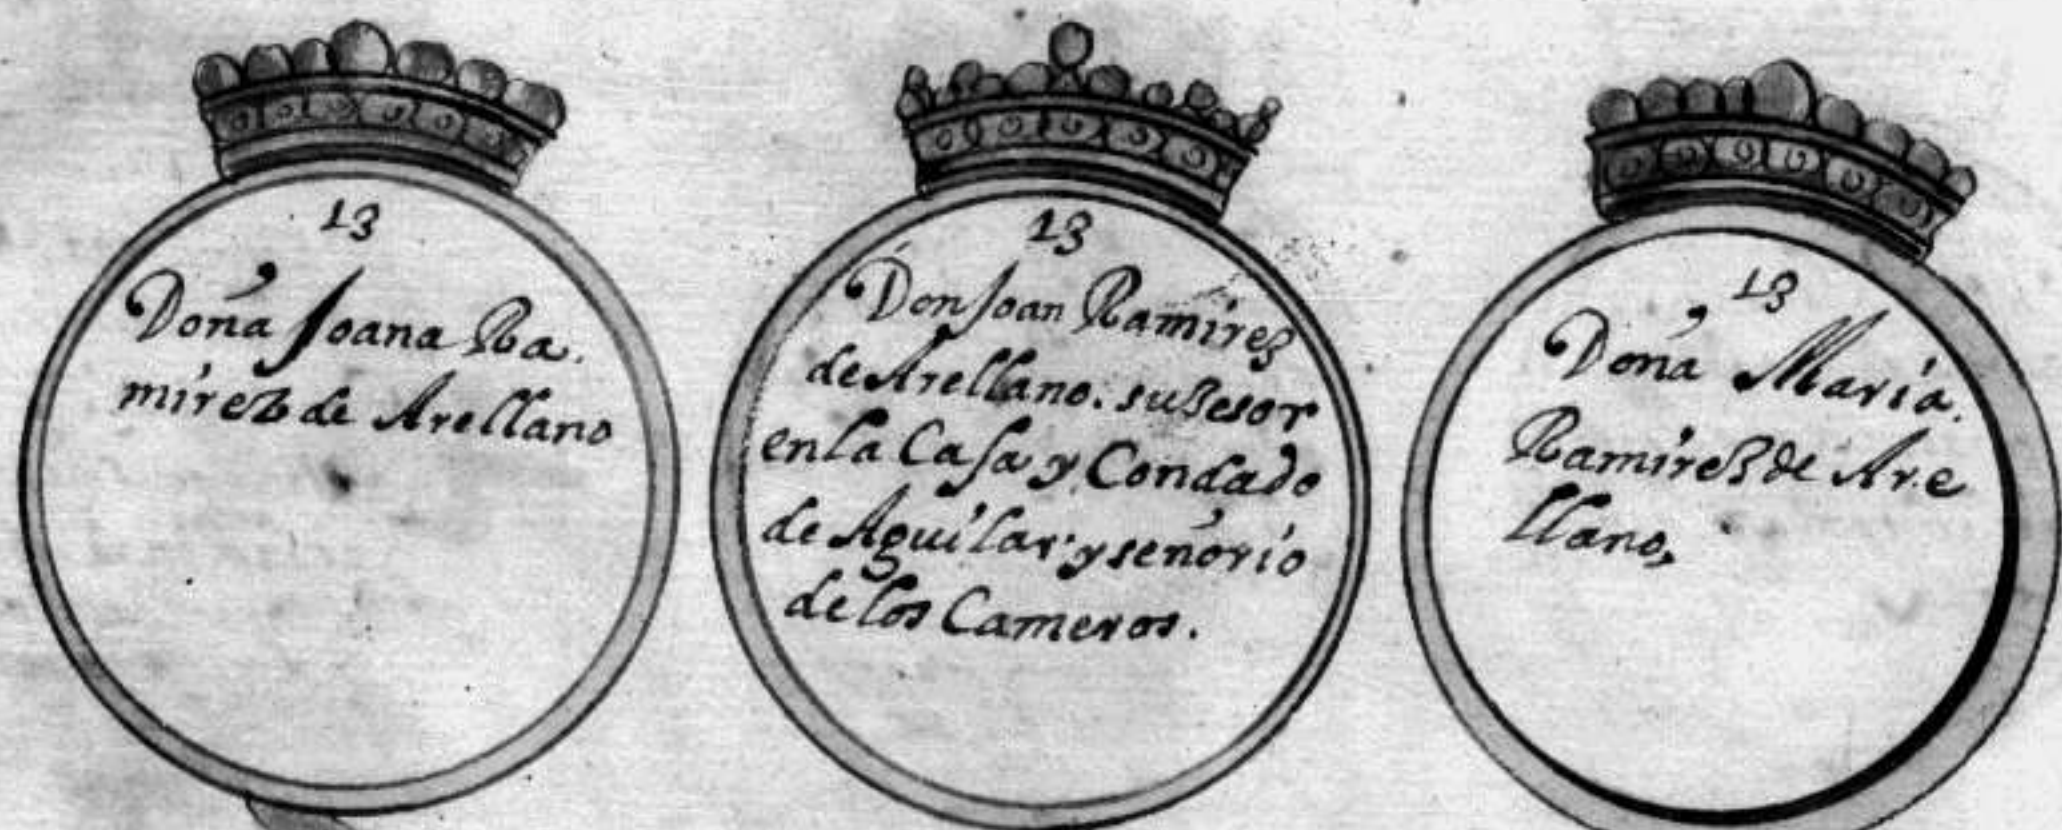 13
Doña Joana Ra.
mirez de Arellano
13
Don Joan Ramirez
de Arellano. suzesor
en la Casa y Condado
de Aguilar y señorio
de los Cameros.
13
Doña Maria.
Ramirez de Are
llano,